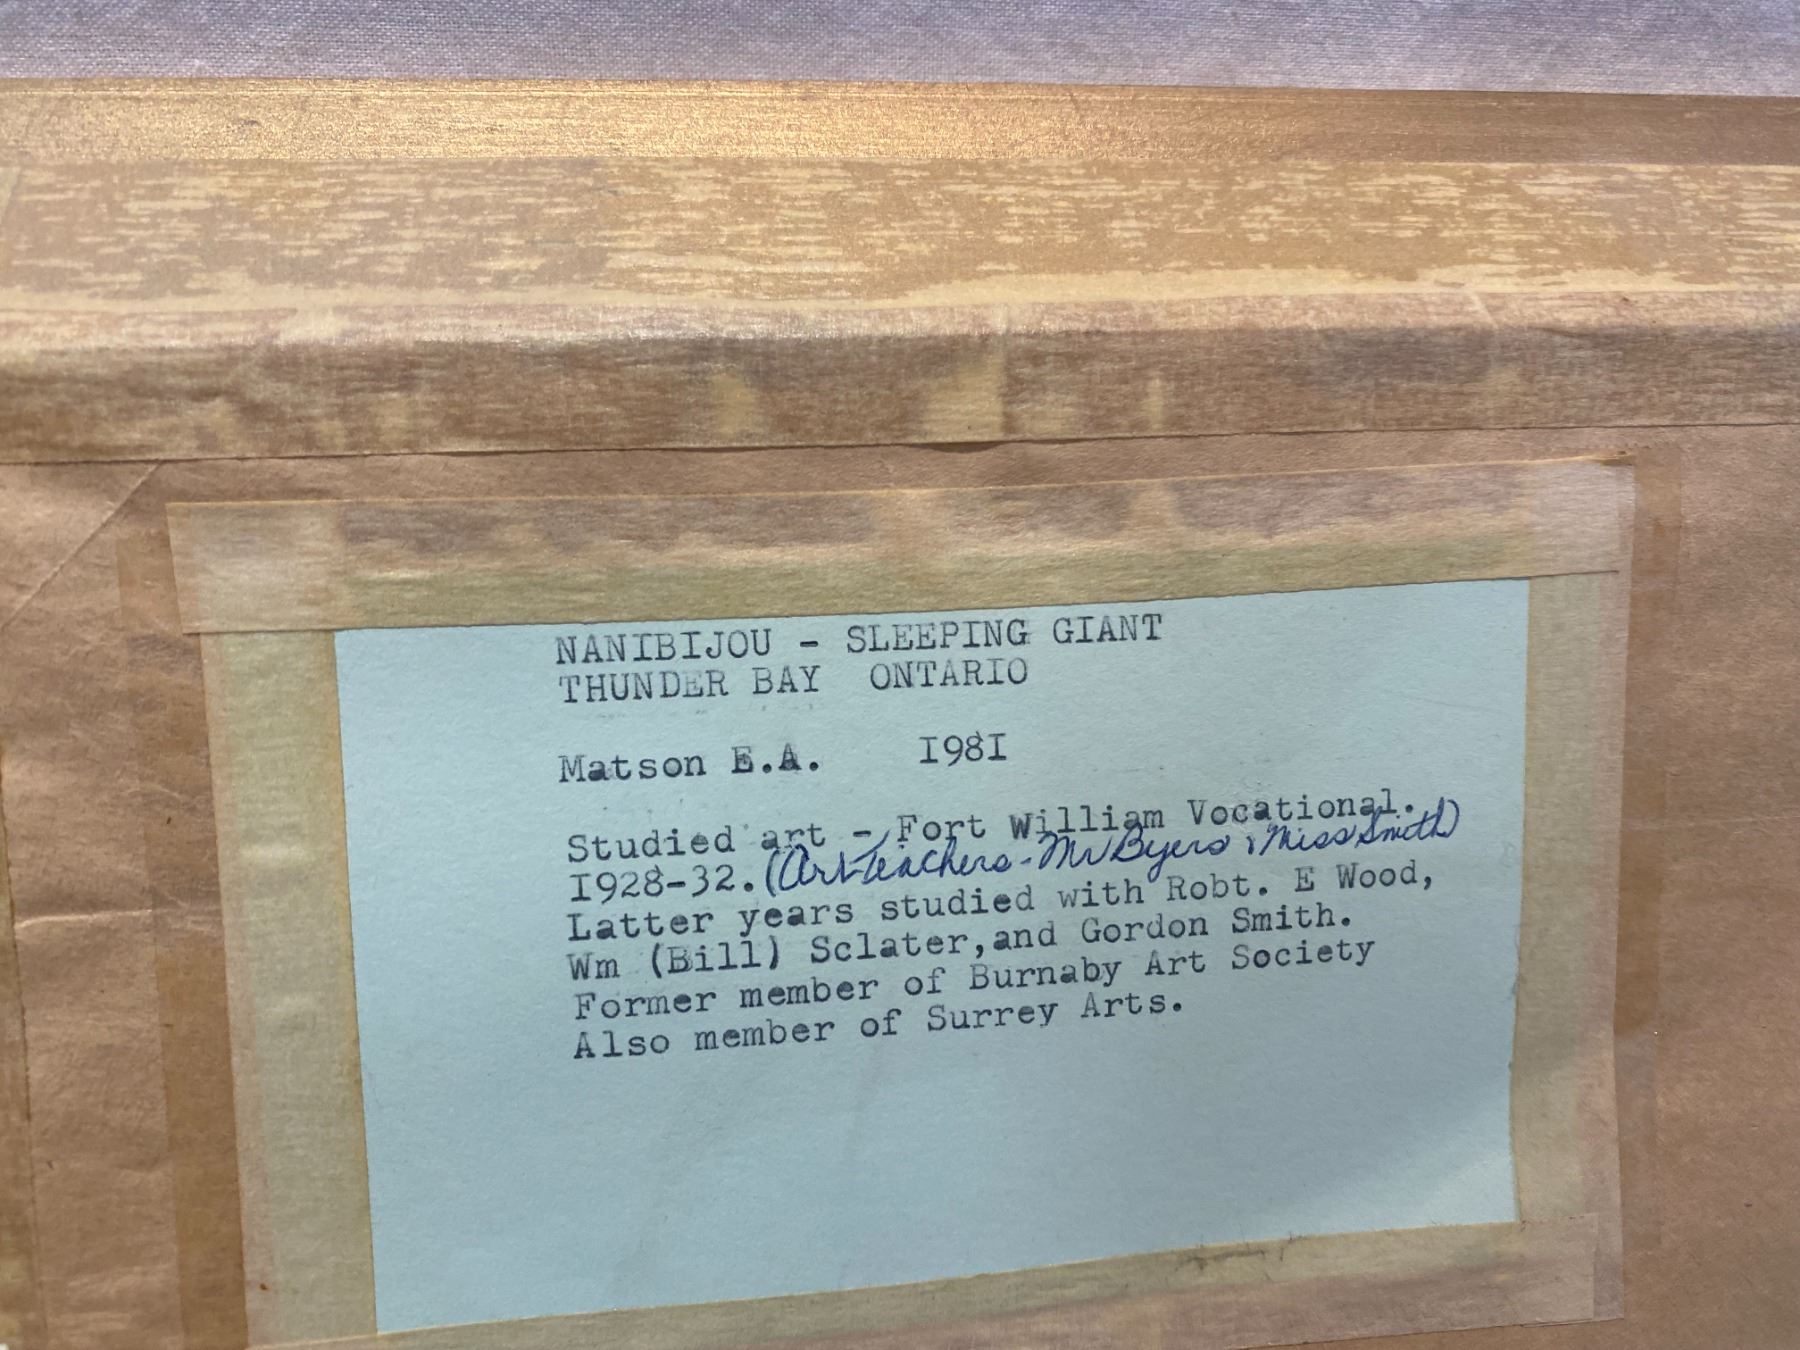 NANIBIJOU - SLEEPING GIANT
THUNDER BAY ONTARIO
Matson E.A. I98I
Studied art - Fort William Vocational.
I928-32. (Art Teachers - Mr Byers & Miss Smith)
Latter years studied with Robt. E Wood,
Wm (Bill) Sclater,and Gordon Smith.
Former member of Burnaby Art Society
Also member of Surrey Arts.